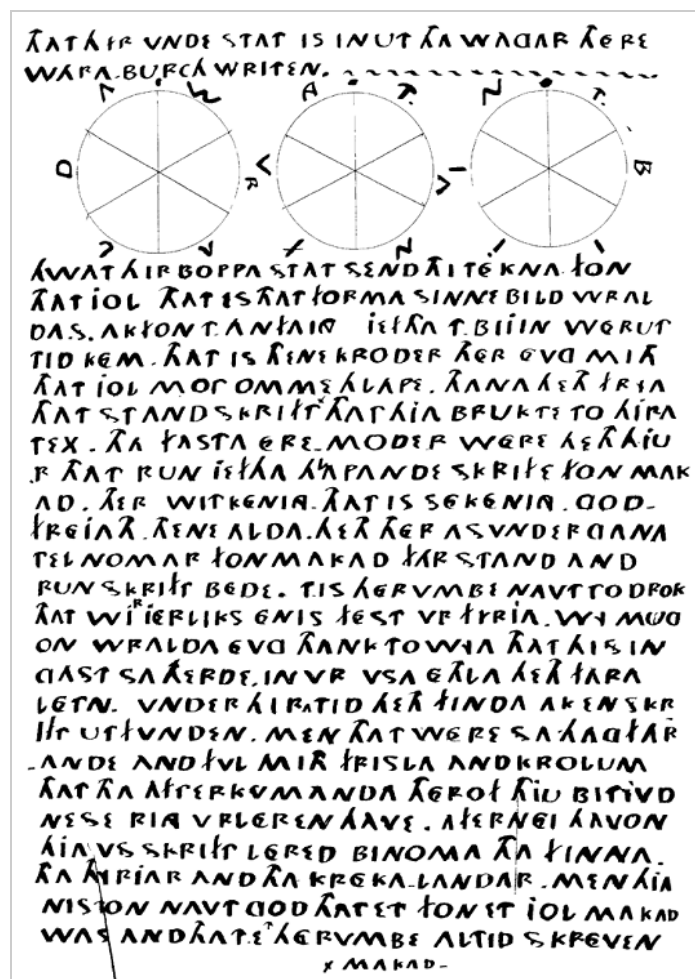 THAT HIR VNDE STAT IS INUT THA WAGAR THERE
WARA-BURCH WRITEN.
WRALDA T.ANFANG T.BIIIN
HWAT HIR BOPPA STAT SEND THI TÉKNA FON
THAT IOL THAT IS THAT FORMA SINNEBILD WRAL
DA.S. AK FON T.ANFANG IEFTHA T.BIIIN WERUT
TID KEM. THAT IS THENE KRODER THER EVG MITH
THAT IOL MOT OMME HLAPE. THANA HETH FRYA
THAT STANDSKRIFT THAT HIA BRUKTE TO HIRA
TEX. THA FASTA ERE-MODER WERE HETH HIU
.R THAT RUN IEFTHA HLAPANDE SKRIFT FON MAK
AD. THER WITKENING.THAT IS SEKENING.GOD-
FREIATH.THENE ALDA.HETH THER ASVNDERGANA
TELNOMAR FON MAKAD FAR STAND AND
RUNSKRIFT BEDE. T.IS THERVMBE NAVT TO DROK
THAT WI.R IERLIKS ENIS FEST VR FYRIA. WY MUG
ON WRALDA EVG THANK TO WYA THAT HI SIN
GAST SA HERDE.IN VR VSA ETHLA HETH FARA
LETN. VNDER HIRA TID HETH FINDA AK EN SKR
IFT UTFUNDEN. MEN THAT WERE SA HAGFAR
-ANDE AND FVL MITH FRISLA AND KROLUM
THAT THA AFTERKVMANDA THEROF THIU BITIVD
NESE RING VRLEREN HAVE. AFTERNEI HAVON
HIA VS SKRIFT LERED BINOMA THA FINNA.
THA THYRIAR AND THA KREKA-LANDAR. MEN HIA
NISTON NAVT GOD THAT ET FON ET IOL MAKAD
WAS AND THAT.ET THERVMBE ALTID SKREVEN
x MAKAD-